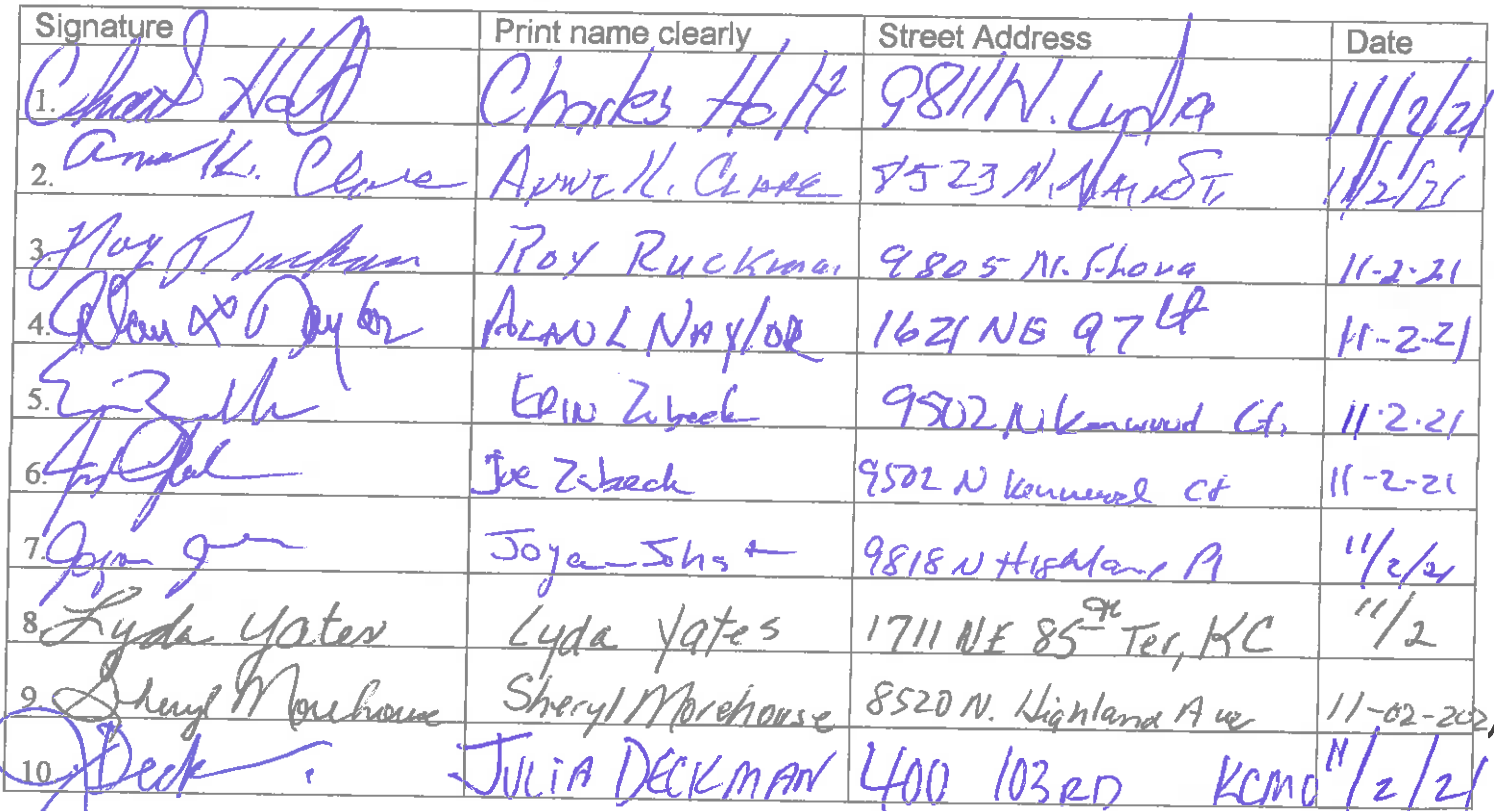 Signature Print name clearly Street Address Date
1. Charles Holt 9811 N. Lydia 11/2/21
2. Anne K. Clare ANNE K. CLARE 8523 N. MAIN ST. 11/2/21
3. Roy Ruckman Roy Ruckman 9805 N. 11-2-21
4. Alan L Naylor ALAN L NAYLOR 1621 NE 97th 11-2-21
5. ERIN Zubeck 9502 N. Kenwood Ct. 11·2·21
6. Joe Zubeck 9502 N Kenwood Ct 11-2-21
7. 9818 N Highland Pl 11/2/21
8. Lyda Yates Lyda Yates 1711 NE 85th Ter, KC 11/2
9. Sheryl Morehouse Sheryl Morehouse 8520 N. Highland Ave 11-02-2021
10. JDeck JULIA DECKMAN 400 103RD KCMO 11/2/21